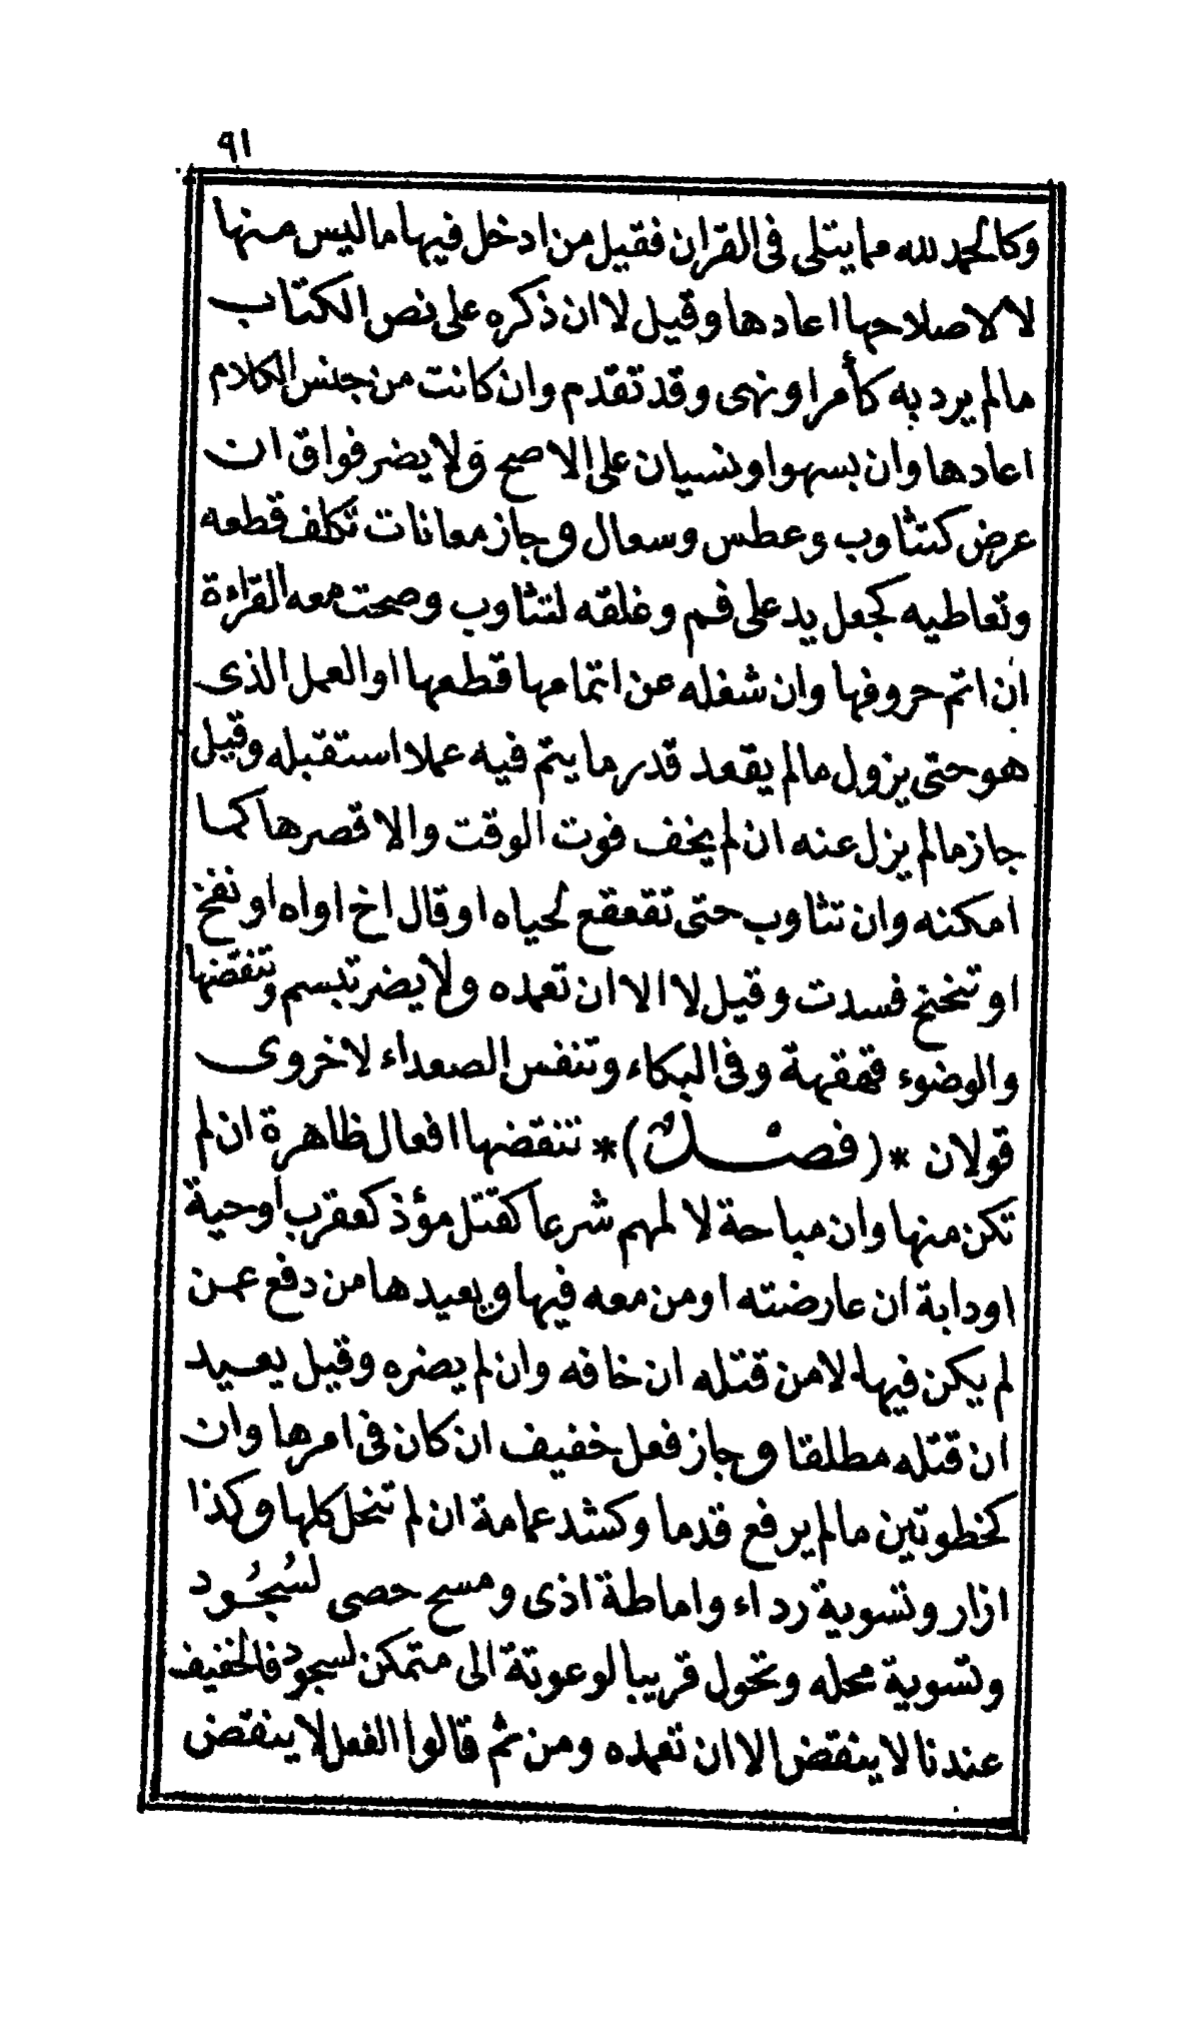 ٩١
وكالحمد لله مما يتلى فى القران فقيل من ادخل فيها ما ليس منها
لا لاصلاحها اعادها وقيل لا ان ذكره على نص الكتاب
ما لم يرد به كأمر او نهى وقد تقدم وان كانت من جنس الكلام
اعادها وان بسهو او نسيان على الاصح ولا يضر فواق ان
عرض كتثاوب وعطس وسعال وجاز معانات تكلف قطعه
وتعاطيه كجعل يد على فم وغلقه لتثاوب وصحت معه القراءة
ان اتم حروفها وان شغله عن اتمامها قطعها او العمل الذى
هو حتى يزول ما لم يقعد قدر ما يتم فيه عملا استقبله وقيل
جاز ما لم يزل عنه ان لم يخف فوت الوقت والا قصرها كما
امكنه وان تثاوب حتى تقعقع لحياه او قال اخ او اه او نفخ
او تنخنخ فسدت وقيل لا الا ان تعمده ولا يضر تبسم وتنقضها
والوضوء قهقهة وفى البكاء وتنفس الصعداء لاخروى
قولان *(فصل)* تنقضها افعال ظاهرة ان لم
تكن منها وان مباحة لا لمهم شرعا كقتل مؤذ كعقرب او حية
او دابة ان عارضته او من معه فيها ويعيدها من دفع عمن
لم يكن فيها لا من قتله ان خافه وان لم يضره وقيل يعيد
ان قتله مطلقا وجاز فعل خفيف ان كان فى امرها وان
كخطوتين ما لم يرفع قدما وكشد عمامة ان لم تنحل كلها وكذا
ازار وتسوية رداء واماطة اذى ومسح حصى لسُجُود
وتسوية محله وتحول قريبا لوعوتة الى متمكن لسجود فالخفيف
عندنا لا ينقض الا ان تعمده ومن ثم قالوا الفعل لا ينقض